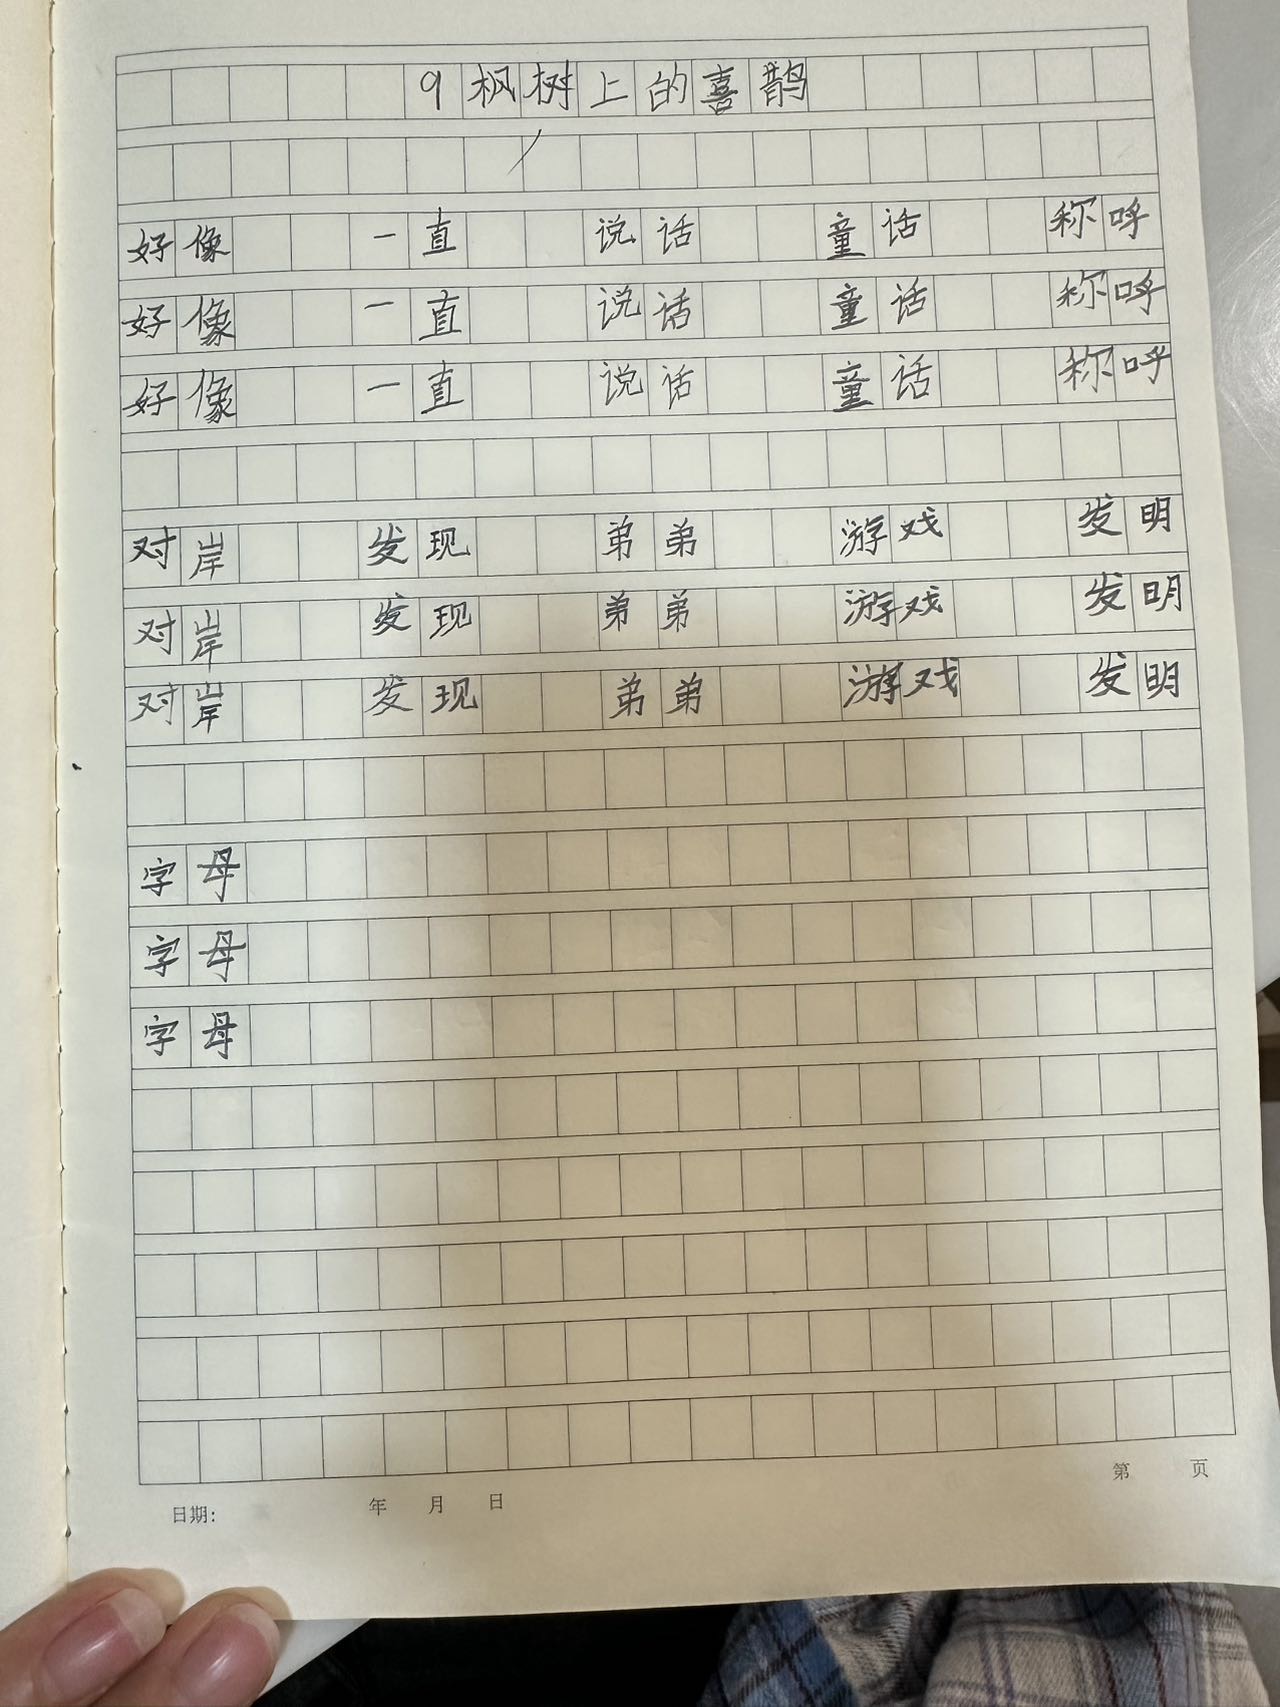 9枫树上的喜鹊
好像 一直 说话 童话 称呼
好像 一直 说话 童话 称呼
好像 一直 说话 童话 称呼
对岸 发现 弟弟 游戏 发明
对岸 发现 弟弟 游戏 发明
对岸 发现 弟弟 游戏 发明
字母
字母
字母
第 页
日期: 年 月 日